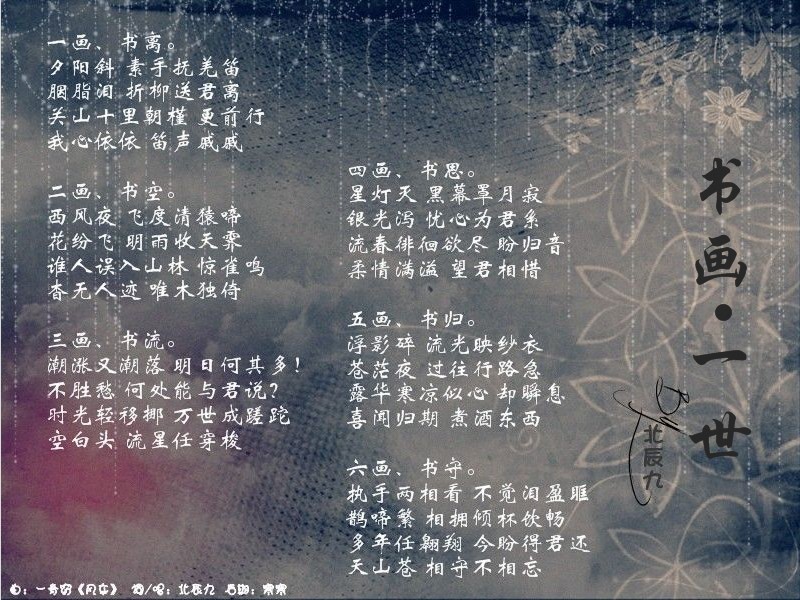 一画、书离。
夕阳斜 素手抚羌笛
胭脂泪 折柳送君离
关山十里朝槿 更前行
我心依依 笛声戚戚
二画、书空。
西风夜 飞度清猿啼
花纷飞 明雨收天霁
谁人误入山林 惊雀鸣
杳无人迹 唯木独倚
三画、书流。
潮涨又潮落 明日何其多！
不胜愁 何处能与君说？
时光轻移挪 万世成蹉跎
空白头 流星任穿梭
四画、书思。
星灯灭 黑幕罩月寂
银光泻 忧心为君系
流春徘徊欲尽 盼归音
柔情满溢 望君相惜
五画、书归。
浮影碎 流光映纱衣
苍茫夜 过往行路急
露华寒凉似心 却瞬息
喜闻归期 煮酒东西
六画、书守。
执手两相看 不觉泪盈眶
鹊啼繁 相拥倾杯饮畅
多年任翱翔 今盼得君还
天山苍 相守不相忘
书画·一世
By
北辰九
曲：一奇穷《》 词/唱：北辰九 后期：寞寞